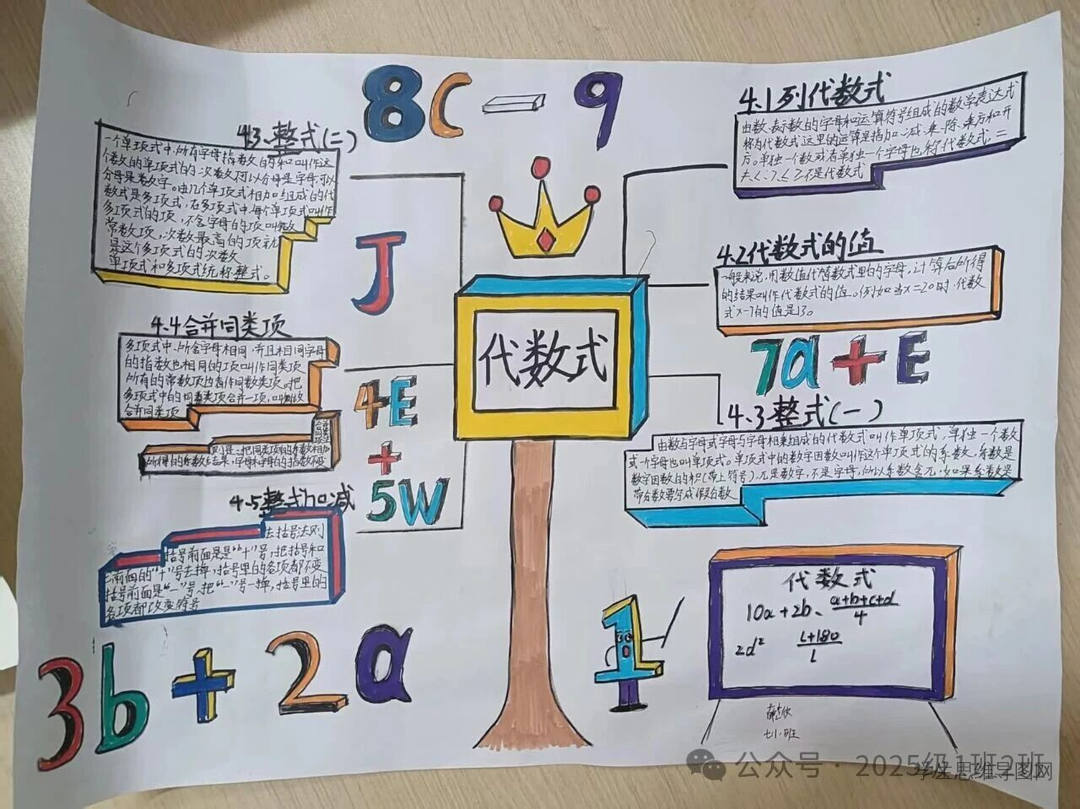 8c-9
4.1列代数式
由数、表示数的字母和运算符号组成的数学表达式
称为代数式.这里的运算是指加、减、乘、除、乘方和开
方。单独一个数或者单独一个字母也称代数式.
不是代数式
4.2代数式的值
一般来说,用数值代替代数式里的字母,计算后所得
的结果叫作代数式的值。例如当x=20时,代数
式x-7的值是13。
7a+E
4.3整式(一)
由数与字母或字母与字母相乘组成的代数式叫作单项式,单独一个数
或一个字母也叫单项式。单项式中的数字因数叫作这个单项式的系数,系数是
数字因数的积(带上符号),π是数字,不是字母,所以系数含π,如果系数是
带分数要写成假分数
4.3、整式(二)
一个单项式中,所有字母指数的和叫作这
个数的单项式的次数
分母是数字。由几个单项式相加组成的代
数式是多项式,在多项式中,每个单项式叫作
多项式的项,不含字母的项叫做
常数项,次数最高的项
是这个多项式的次数
单项式和多项式统称整式。
J
4.4合并同类项
多项式中,所含字母相同,并且相同字母
的指数也相同的项叫作同类项
所有的常数项也看作同类项。把
多项式中的同类项合并一项,叫做
合并同类项
把同类项的系数相加
所得的和作系数,字母和字母的指数不变
4E
+
5W
4.5整式加减
去括号法则
括号前面是是“+”号,把括号和
前面的“+”号去掉,括号里的各项都不变
括号前面是“-”号,把“-”号一掉,括号里的
各项都改变符号
3b+2a
代数式
1
代数式
10a+2b、(a+b+c+d)/4
2d² (L+180)/L
七1班
公众号·2025级1班2班
学生思维导图网